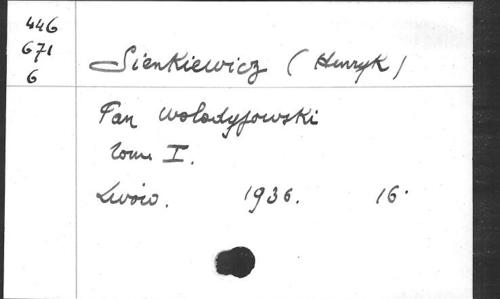 446
671
6
Sienkiewicz (Henryk)
Pan Wolodyjowski
tom I.
Lwów. 1936. 16°